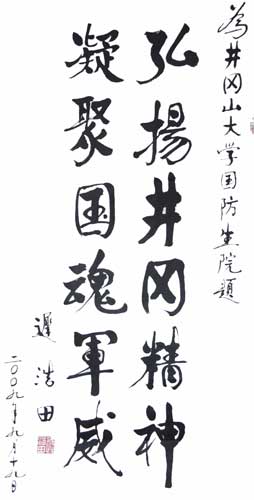 為井冈山大学国防生院題
弘揚井冈精神
凝聚国魂軍威
遲浩田
二〇〇九年九月十九日